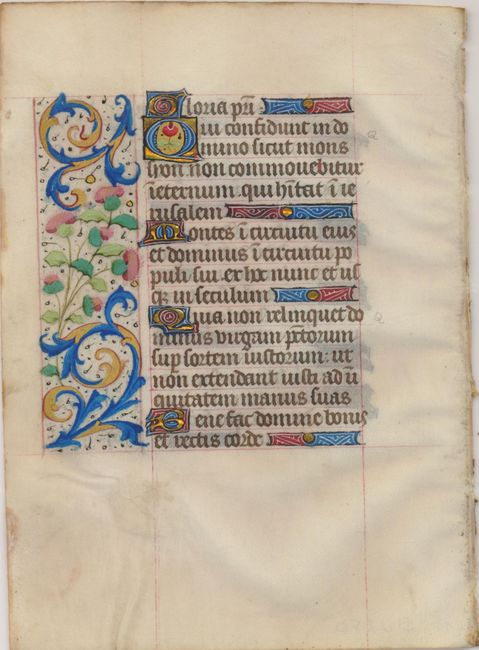 Gloria pri
Qui confidunt in do
mino sicut mons
syon non commovebitur
ieternum qui hitat i ie
rusalem
Montes i circuitu eius
et dominus i circuitu po
puli sui ex hoc nunc et us
qz in seculum
Quia non relinquet do
minus virgam pctorum
sup sortem iustorum: ut
non extendant iusti ad i
quitatem manus suas
Bene fac domine bonis
et rectis corde